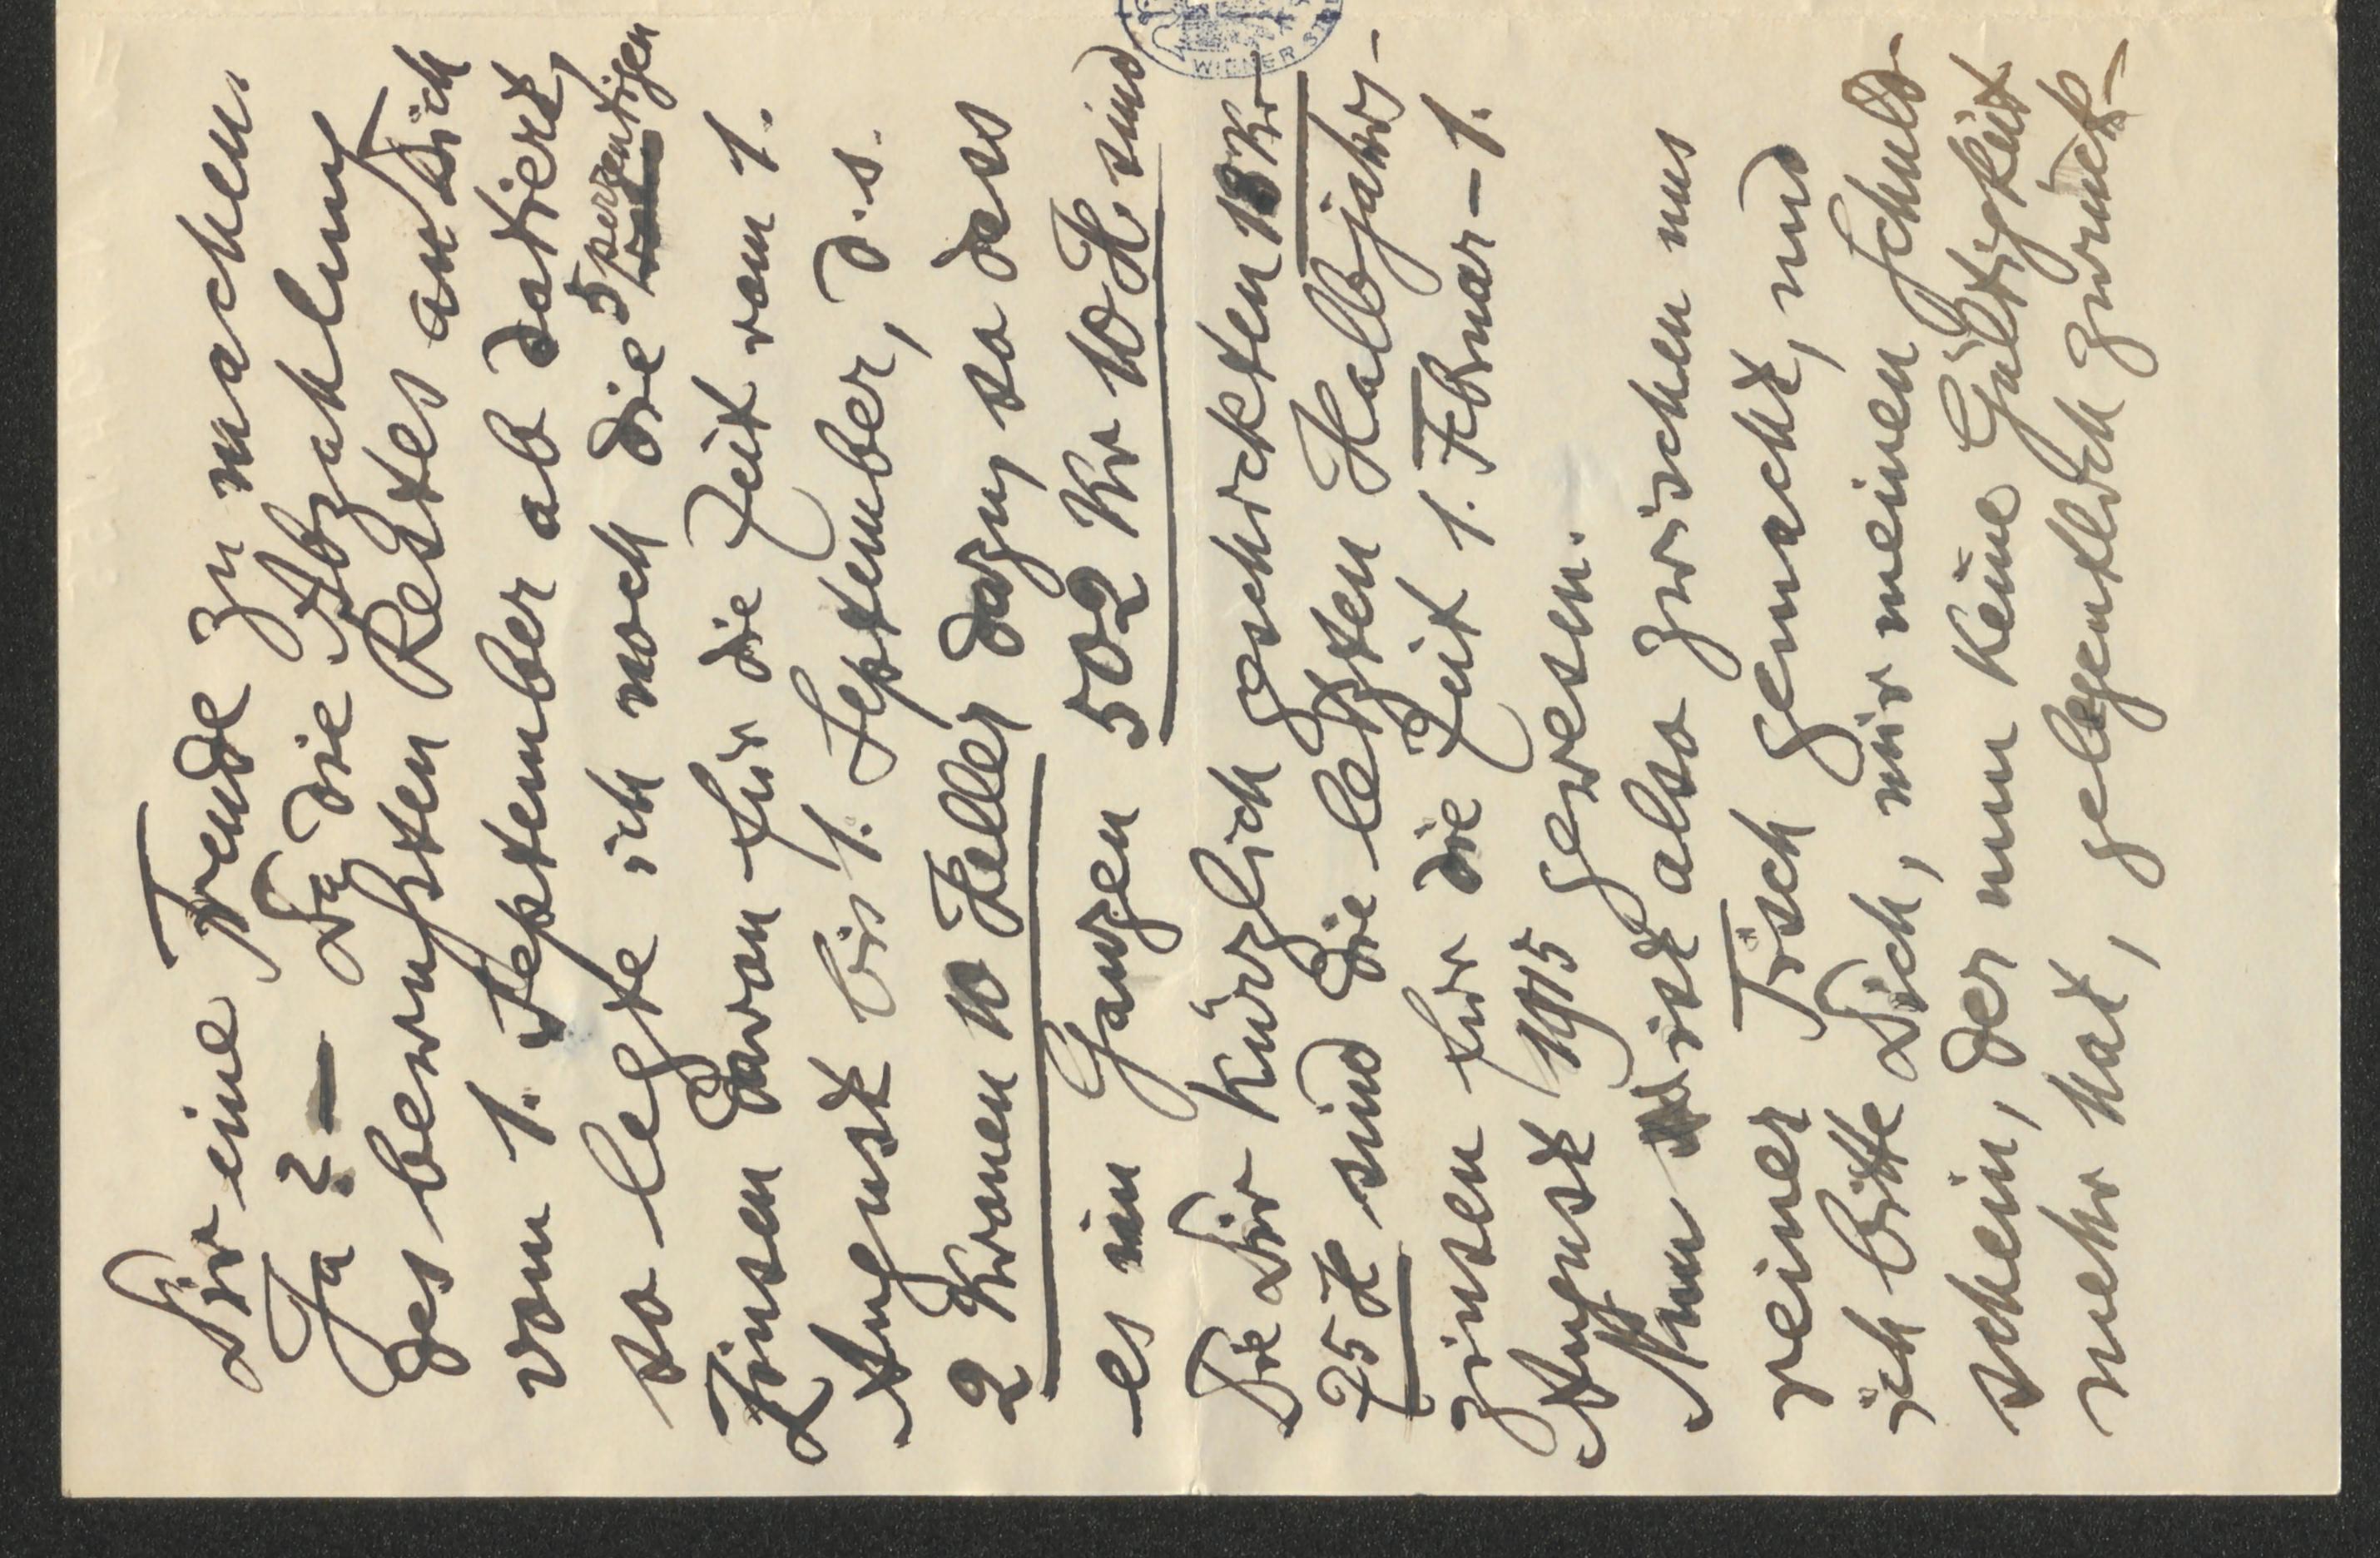 Dir eine Freude zu machen.
Ja? – Da die Abzahlung
des bewußten Restes an Dich
vom 1. September ab datiert,
so legte ich noch die 5 perzentigen
Zinsen davon für die Zeit vom 1.
August bis 1. September, d. s.
2 Kronen 10 Heller dazu, so dass
es im Ganzen 502 Kr 10 H. sind
Die Dir kürzlich geschickten 18 Kr
75 H sind die letzten Halbjahrs-
zinsen für die Zeit 1. Februar – 1.
August 1915 gewesen.
Nun ist also zwischen uns
reiner Tisch gemacht, und
ich bitte Dich, mir meinen Schuld-
schein, der nun keine Gültigkeit
mehr hat, gelegentlich zurück-
WIENER S